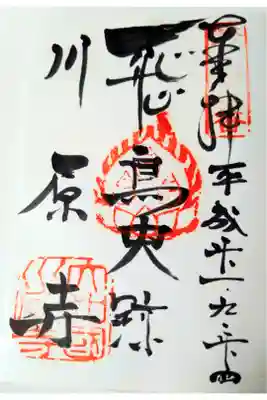 平成廿一・九・二十四
飛鳥史跡
川原寺